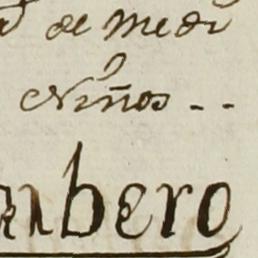 de Medi
o
Niños --
ubero